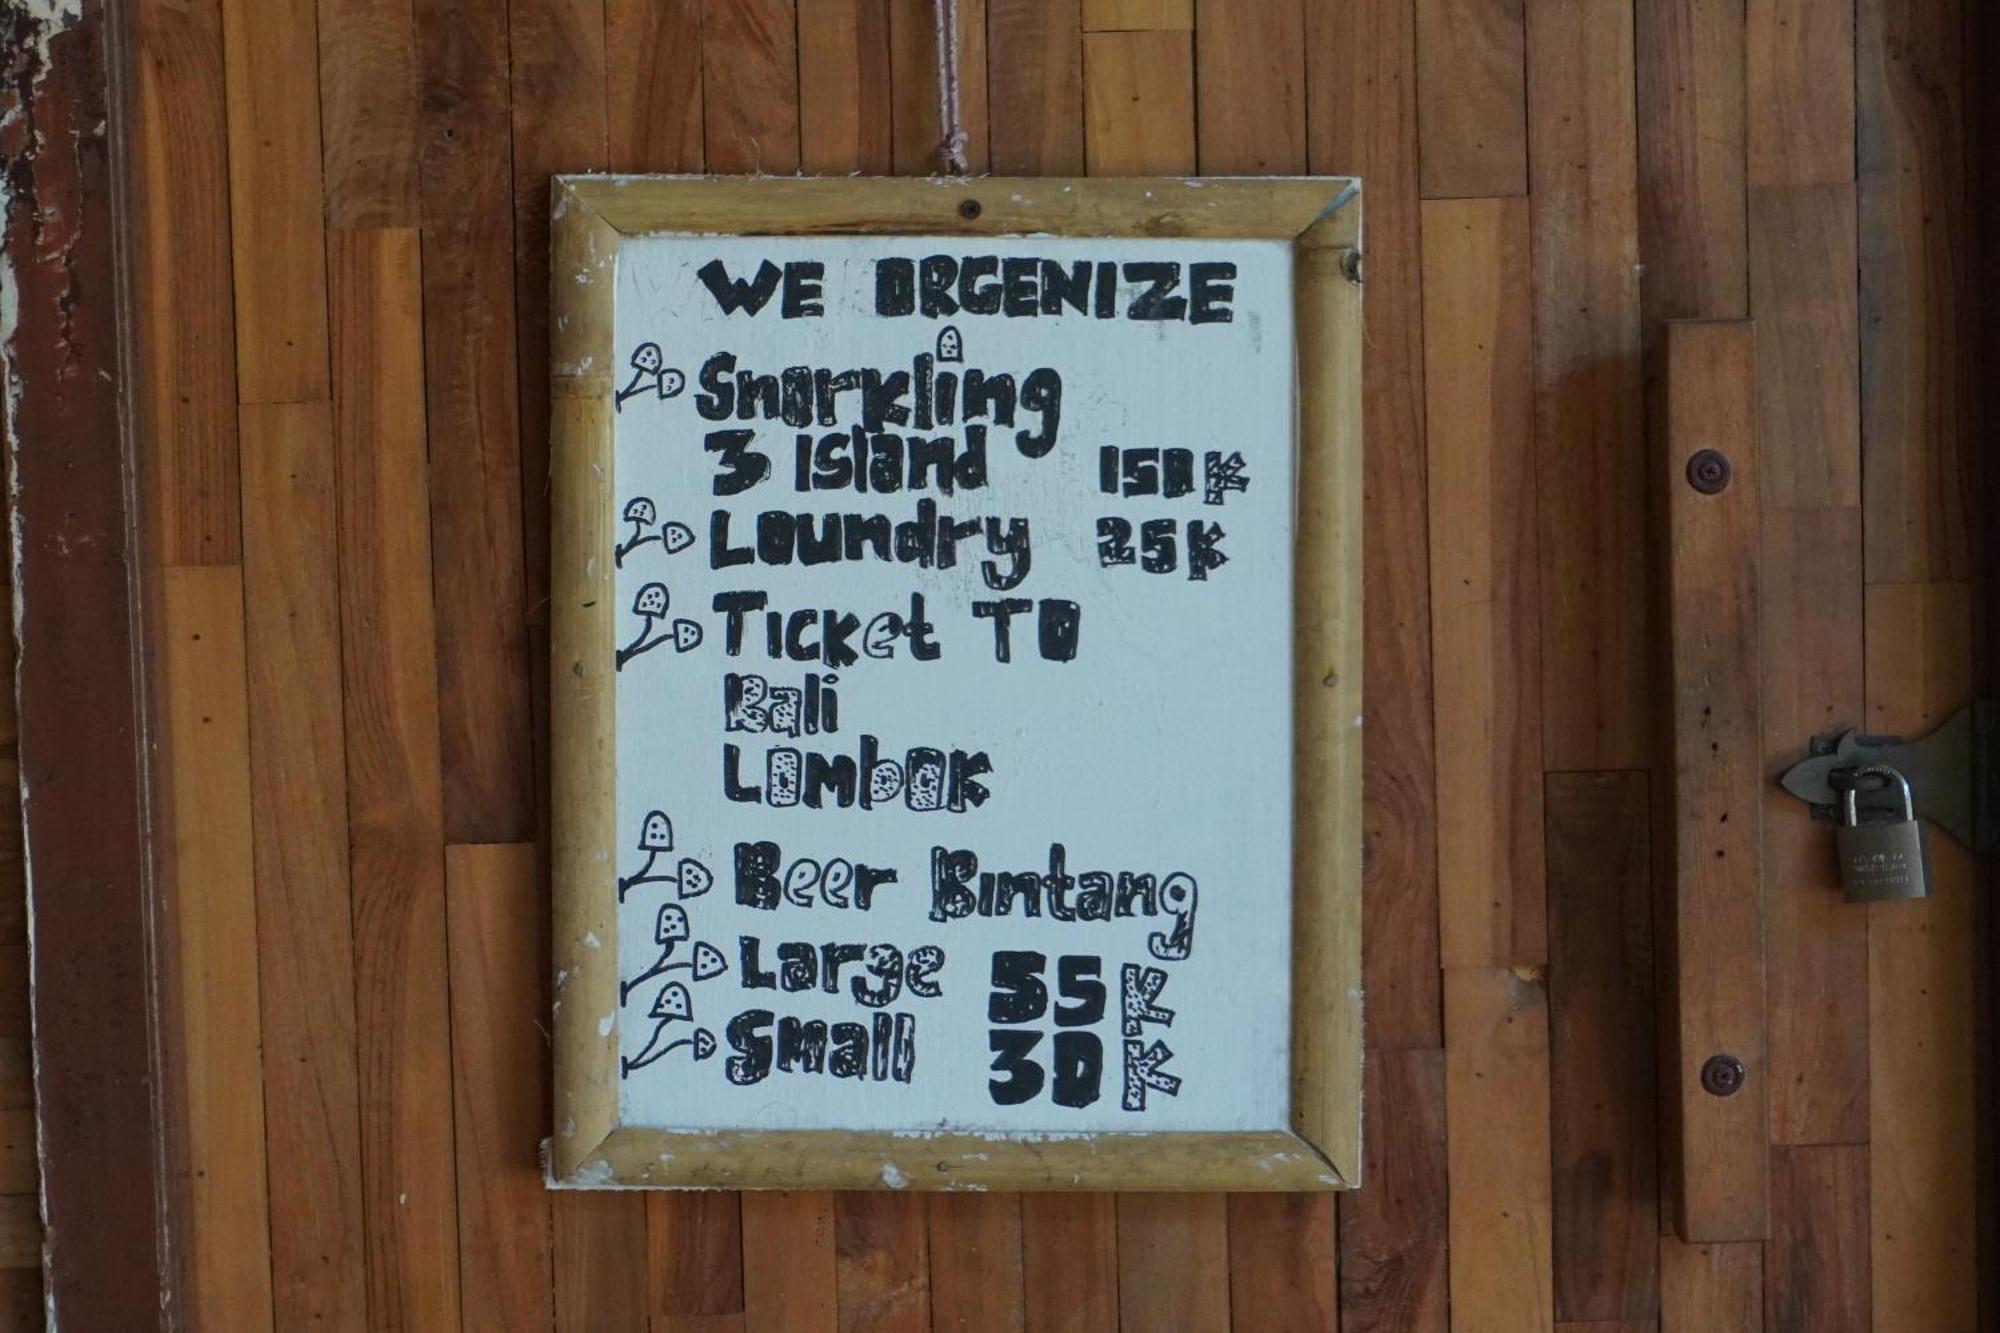 WE ORGENIZE
Snorkling
3 Island 150K
Loundry 25K
Ticket TO
Bali
Lombok
Beer Bintang
Large 55K
Small 30K